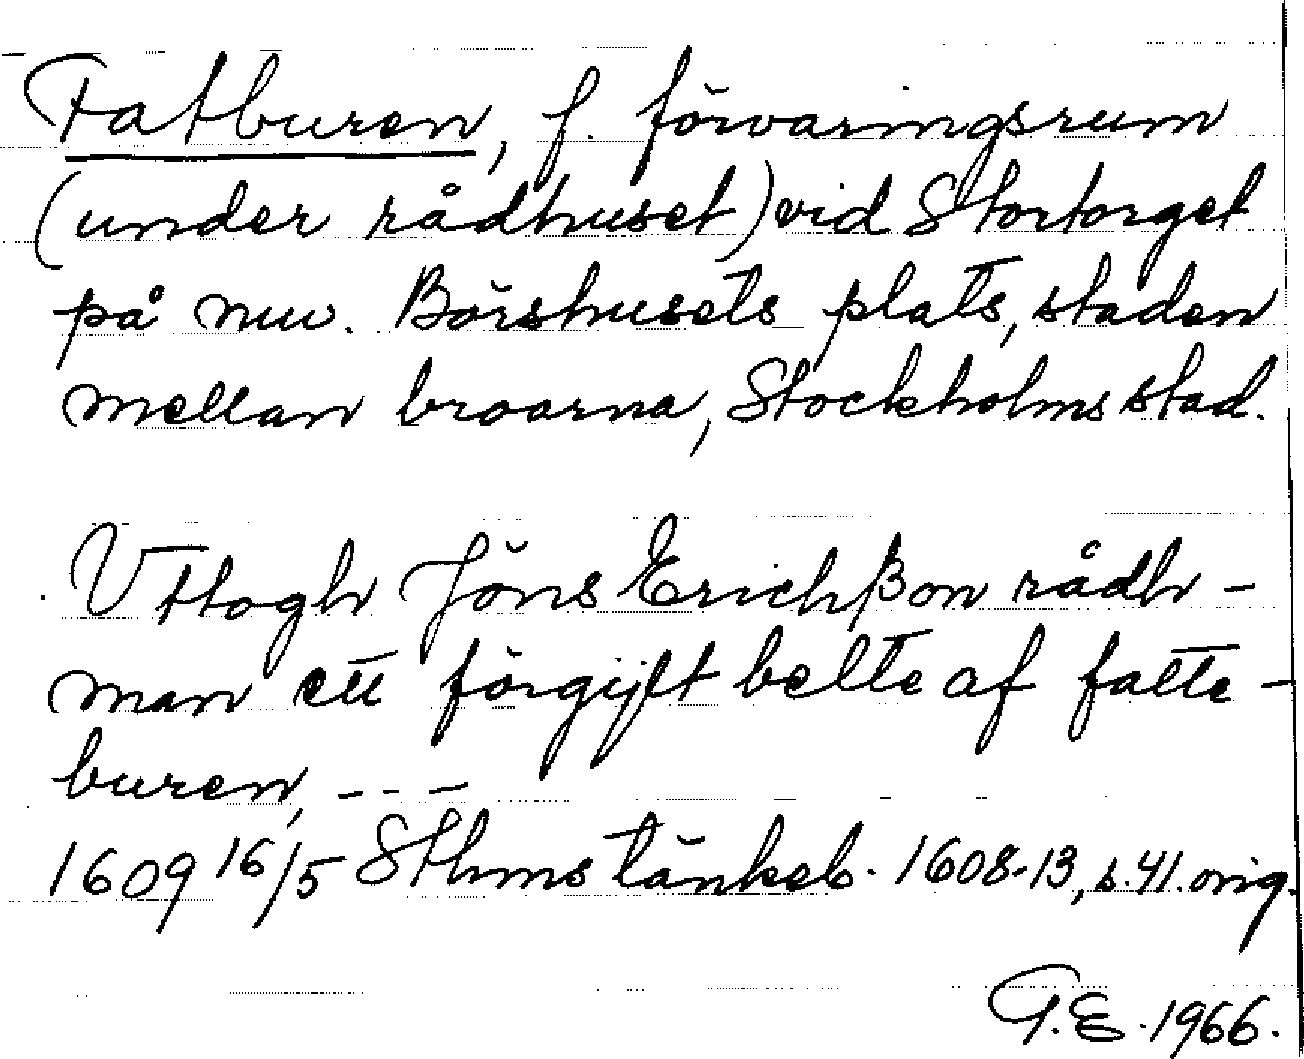 Fatburen, f. förvaringsrum
(under rådhuset) vid Stortorget
på nuv. Börshusets plats, staden
mellan broarna, Stockholms stad.
Vttogh Jöns Erichßon rådh-
man ett förgijlt bellte af fatte-
buren, - - -
1609 16/5 Sthms tänkeb. 1608-13, s. 41. orig.
G.E. 1966.